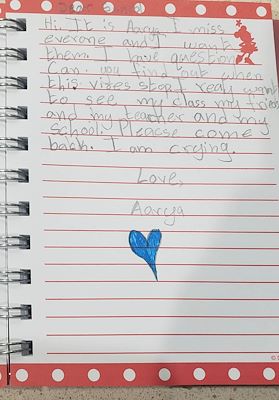 Dear
Hi. It is Aarya. I miss
everone and I want
them. I have question
Can. you find out when
this vires stop I realy want
to see my class my frieds
and my teacher and my
school. Pleacse come
back. I am crying.
Love,
Aarya